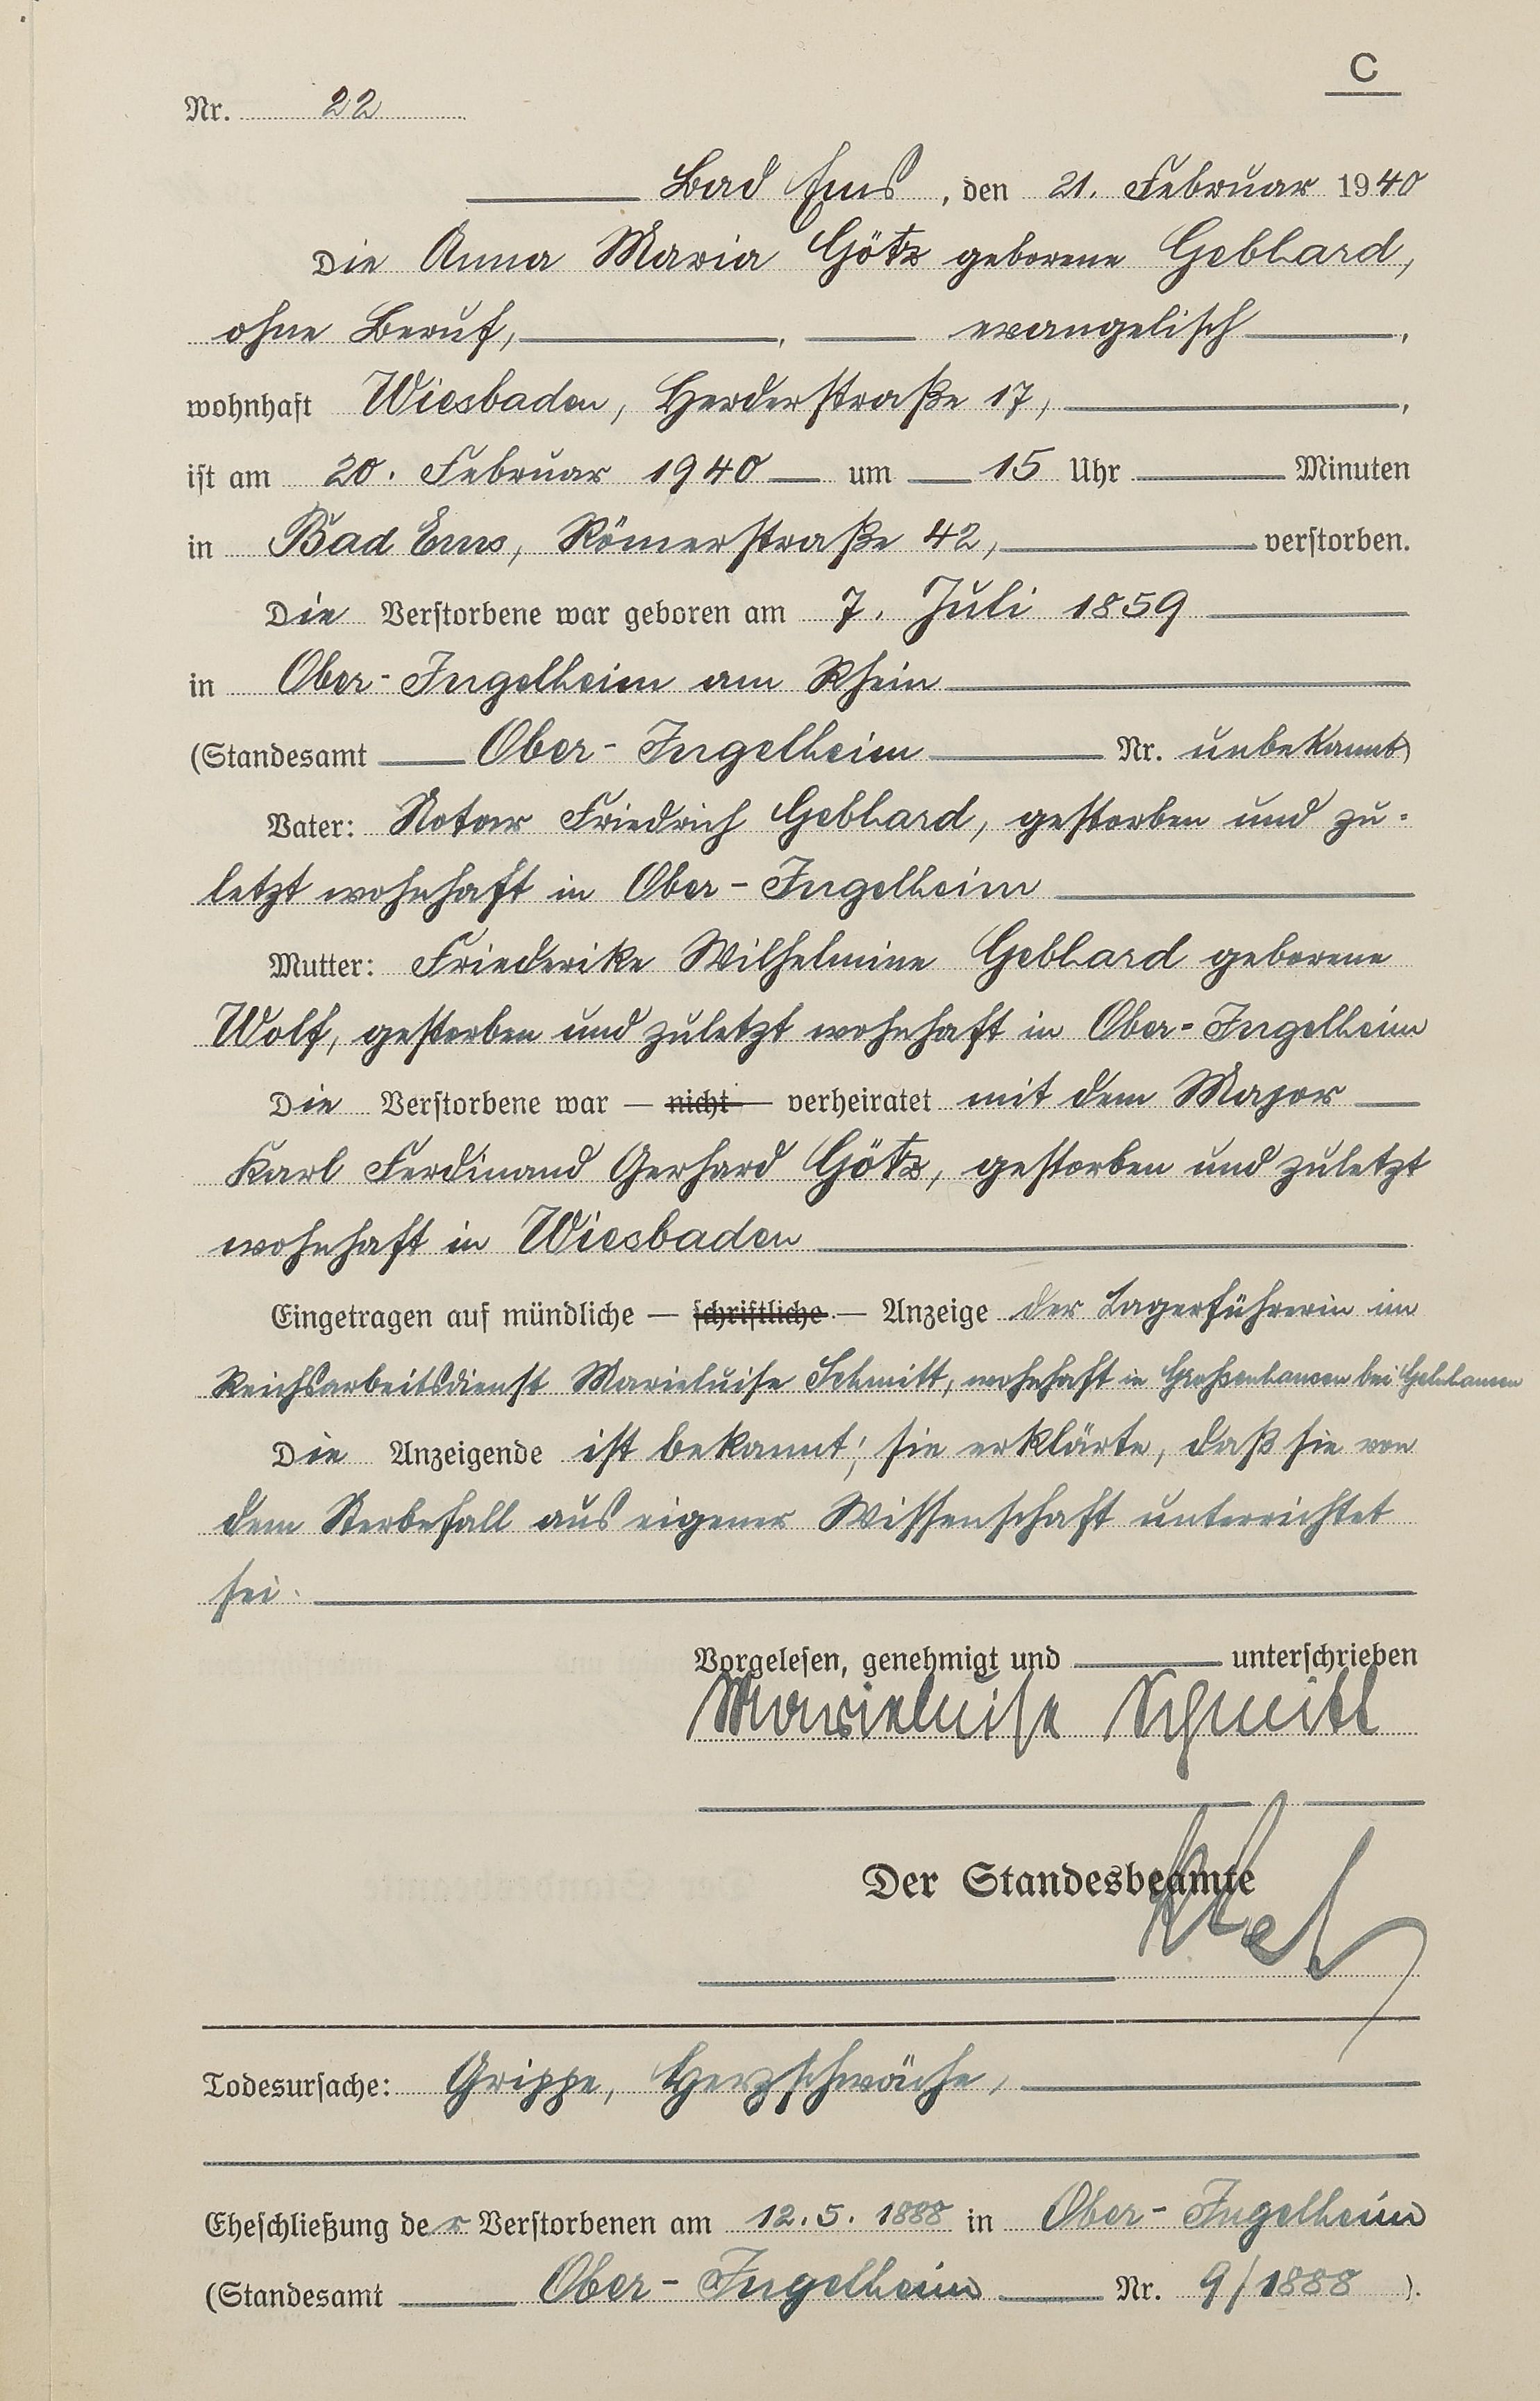 C
Nr. 22
Bad Ems, den 21. Februar 1940
Die Anna Maria Götz geborene Gebhard,
ohne Beruf, , evangelisch ,
wohnhaft Wiesbaden, Herderstraße 17, ,
ist am 20. Februar 1940 um 15 Uhr Minuten
in Bad Ems, Römerstraße 42, verstorben.
Die Verstorbene war geboren am 7. Juli 1859
in Ober-Ingelheim am Rhein
(Standesamt Ober-Ingelheim Nr. unbekannt)
Vater: Notar Friedrich Gebhard, gestorben und zu-
letzt wohnhaft in Ober-Ingelheim
Mutter: Friederike Wilhelmine Gebhard geborene
Wolf, gestorben und zuletzt wohnhaft in Ober-Ingelheim
Die Verstorbene war — nicht — verheiratet mit dem Major
Karl Ferdinand Gerhard Götz, gestorben und zuletzt
wohnhaft in Wiesbaden
Eingetragen auf mündliche — schriftliche — Anzeige der Lagerführerin im
Reichsarbeitsdienst Marieluise Schmitt, wohnhaft in Großenhausen bei Gelnhausen
Die Anzeigende ist bekannt; sie erklärte, daß sie von
dem Sterbefall aus eigener Wissenschaft unterrichtet
sei.
Vorgelesen, genehmigt und unterschrieben
Marieluise Schmitt
Der Standesbeamte
Todesursache: Grippe, Herzschwäche,
Eheschließung der Verstorbenen am 12.5.1888 in Ober-Ingelheim
(Standesamt Ober-Ingelheim Nr. 9/1888 ).